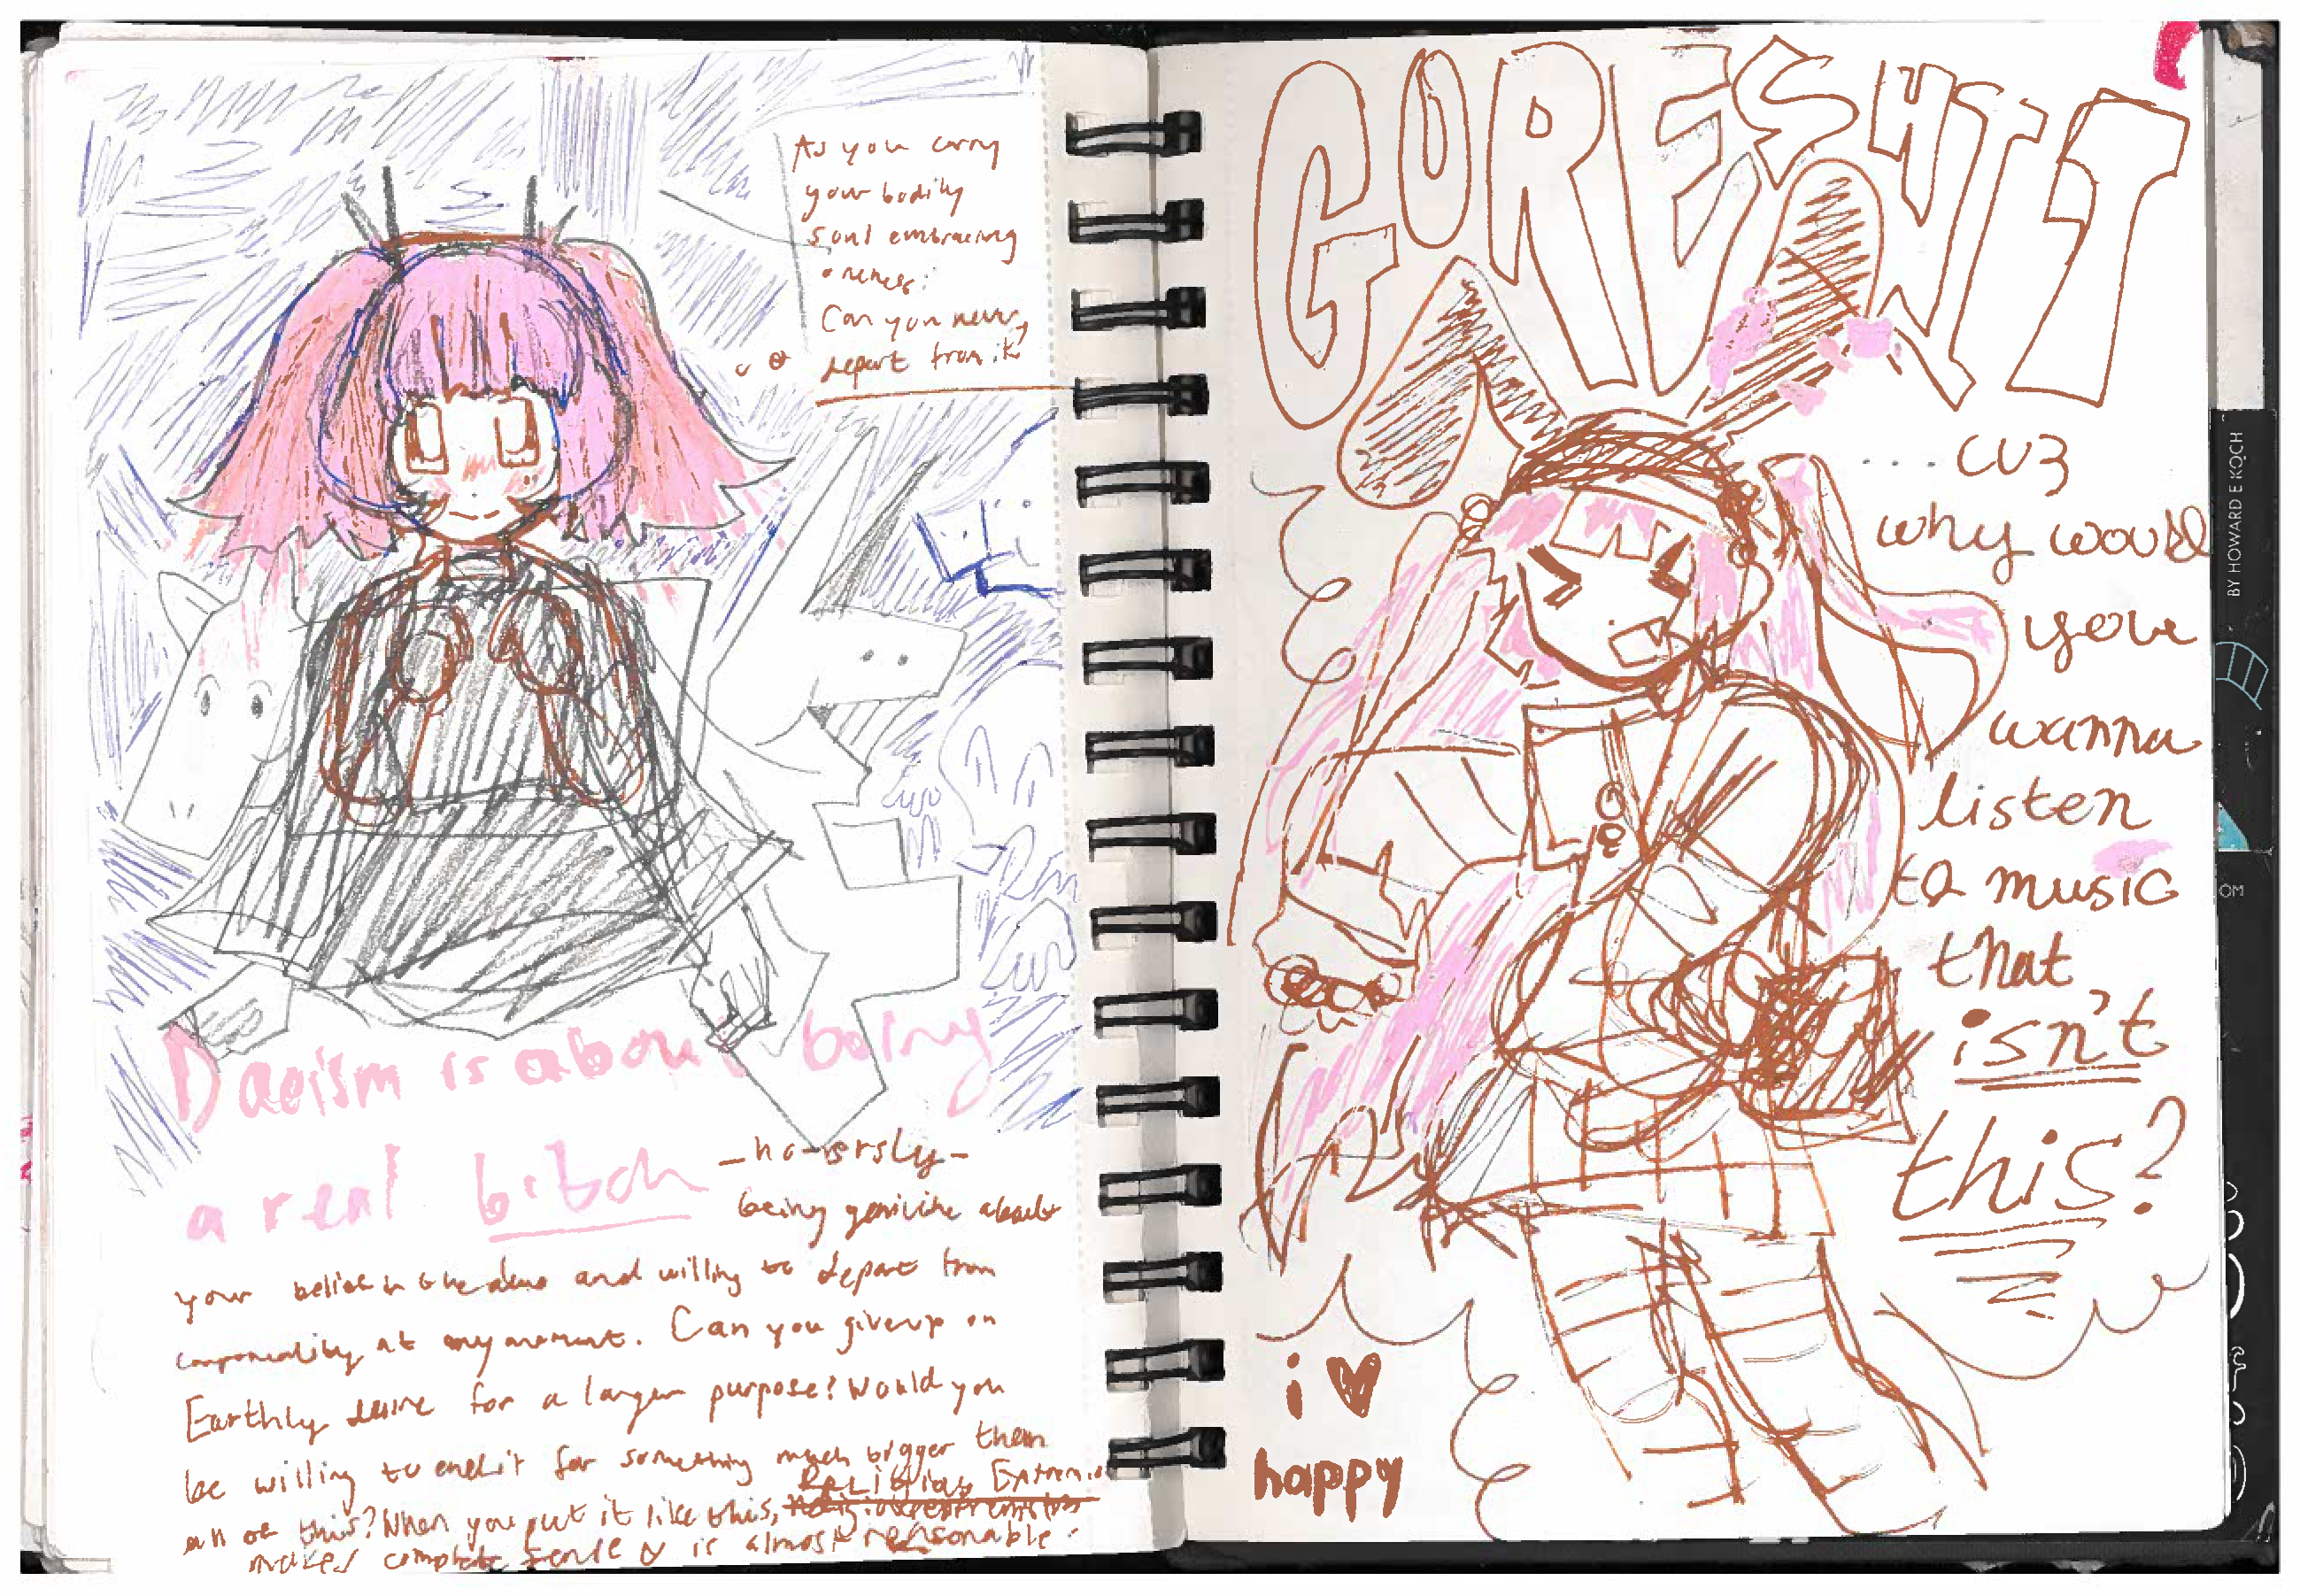 As you carry
your bodily
soul embracing
oneness:
Can you never
depart from it
Daoism is about being
a real bitch
being genuine about
your belief in the dao and willing to depart from
corporeality at any moment. Can you give up on
Earthly desire for a larger purpose? Would you
be willing to end it for something much bigger then
all of this? When you put it like this, Religious Extremis
makes complete sense & is almost reasonable.
GORESHIT
.... cuz
why would
you
wanna
listen
to music
that
isn't
this?
i ♥
happy
BY HOWARD E KOCH